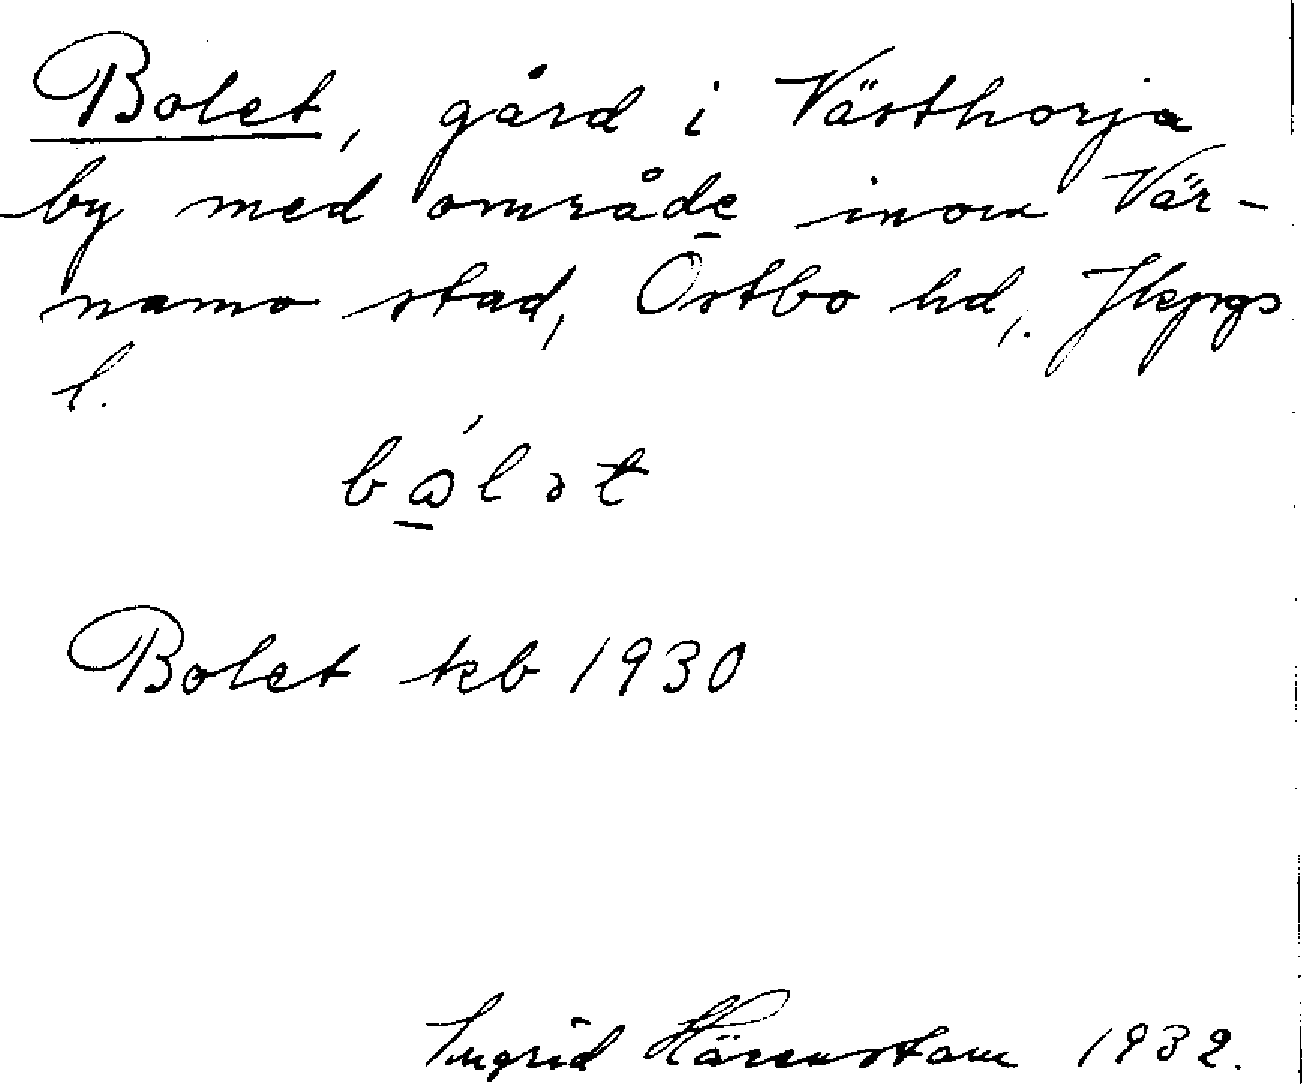 Bolet, gård i Västhorja
by med område inom Vär-
namo stad, Östbo hd,. Jkpgs
l.
bώ̲lət
Bolet kb 1930
Ingrid Härenstam 1932.